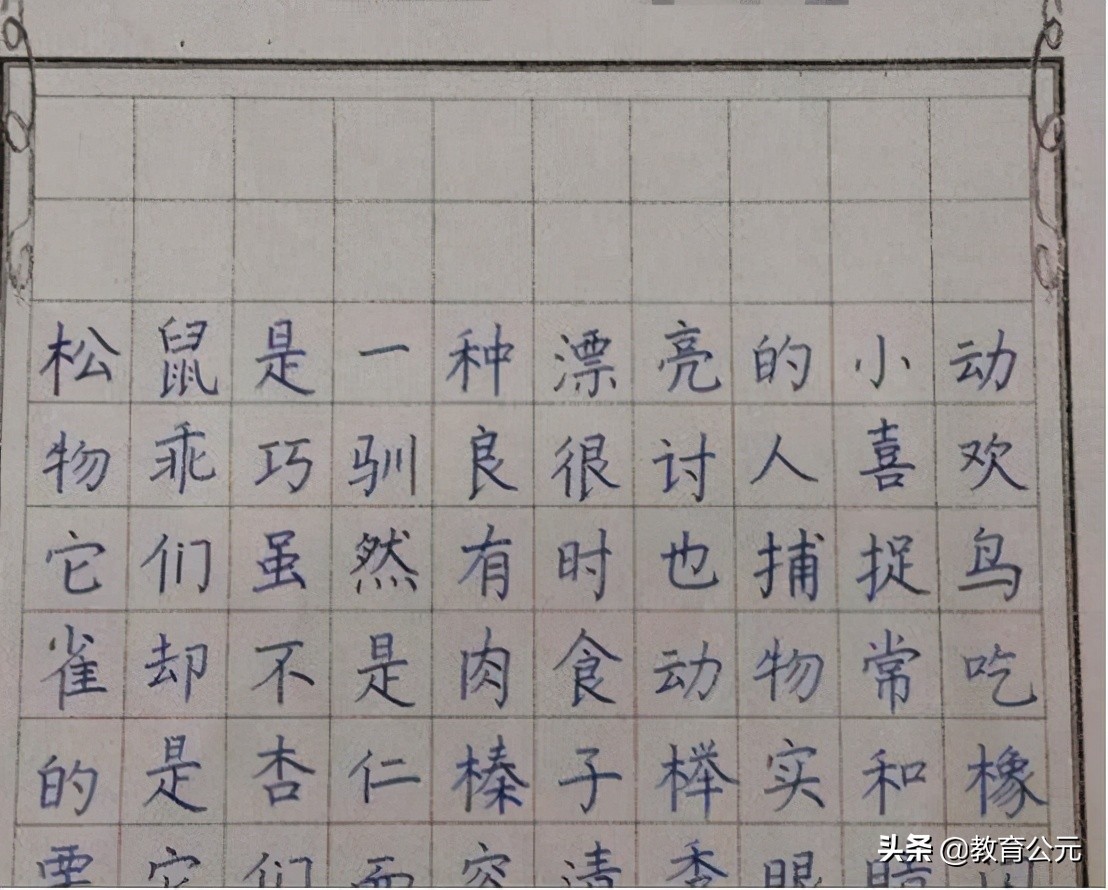 松鼠是一种漂亮的小动
物乖巧驯良很讨人喜欢
它们虽然有时也捕捉鸟
雀却不是肉食动物常吃
的是杏仁榛子榉实和橡
栗它们面容清秀眼睛
头条 @教育公元